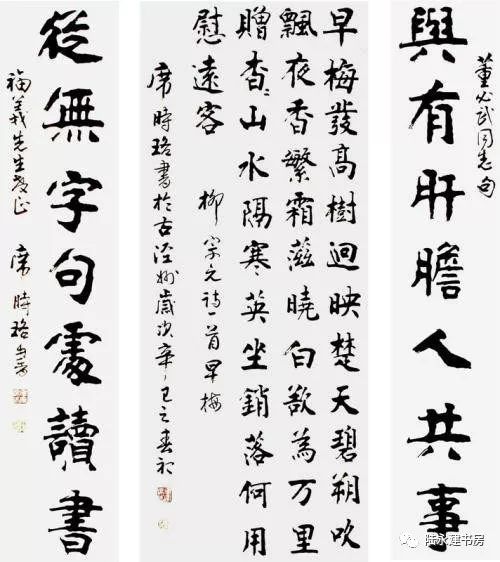 董必武同志句
與有肝膽人共事
早梅發高樹迥映楚天碧朔吹
飄夜香繁霜滋曉白欲為万里
贈杳〻山水隔寒英坐銷落何用
慰遠客 柳宗元詩一首早梅
席時珞書於古涇州歲次辛巳之春初
從無字句處讀書
福義先生教正 席時珞
陆永建书房